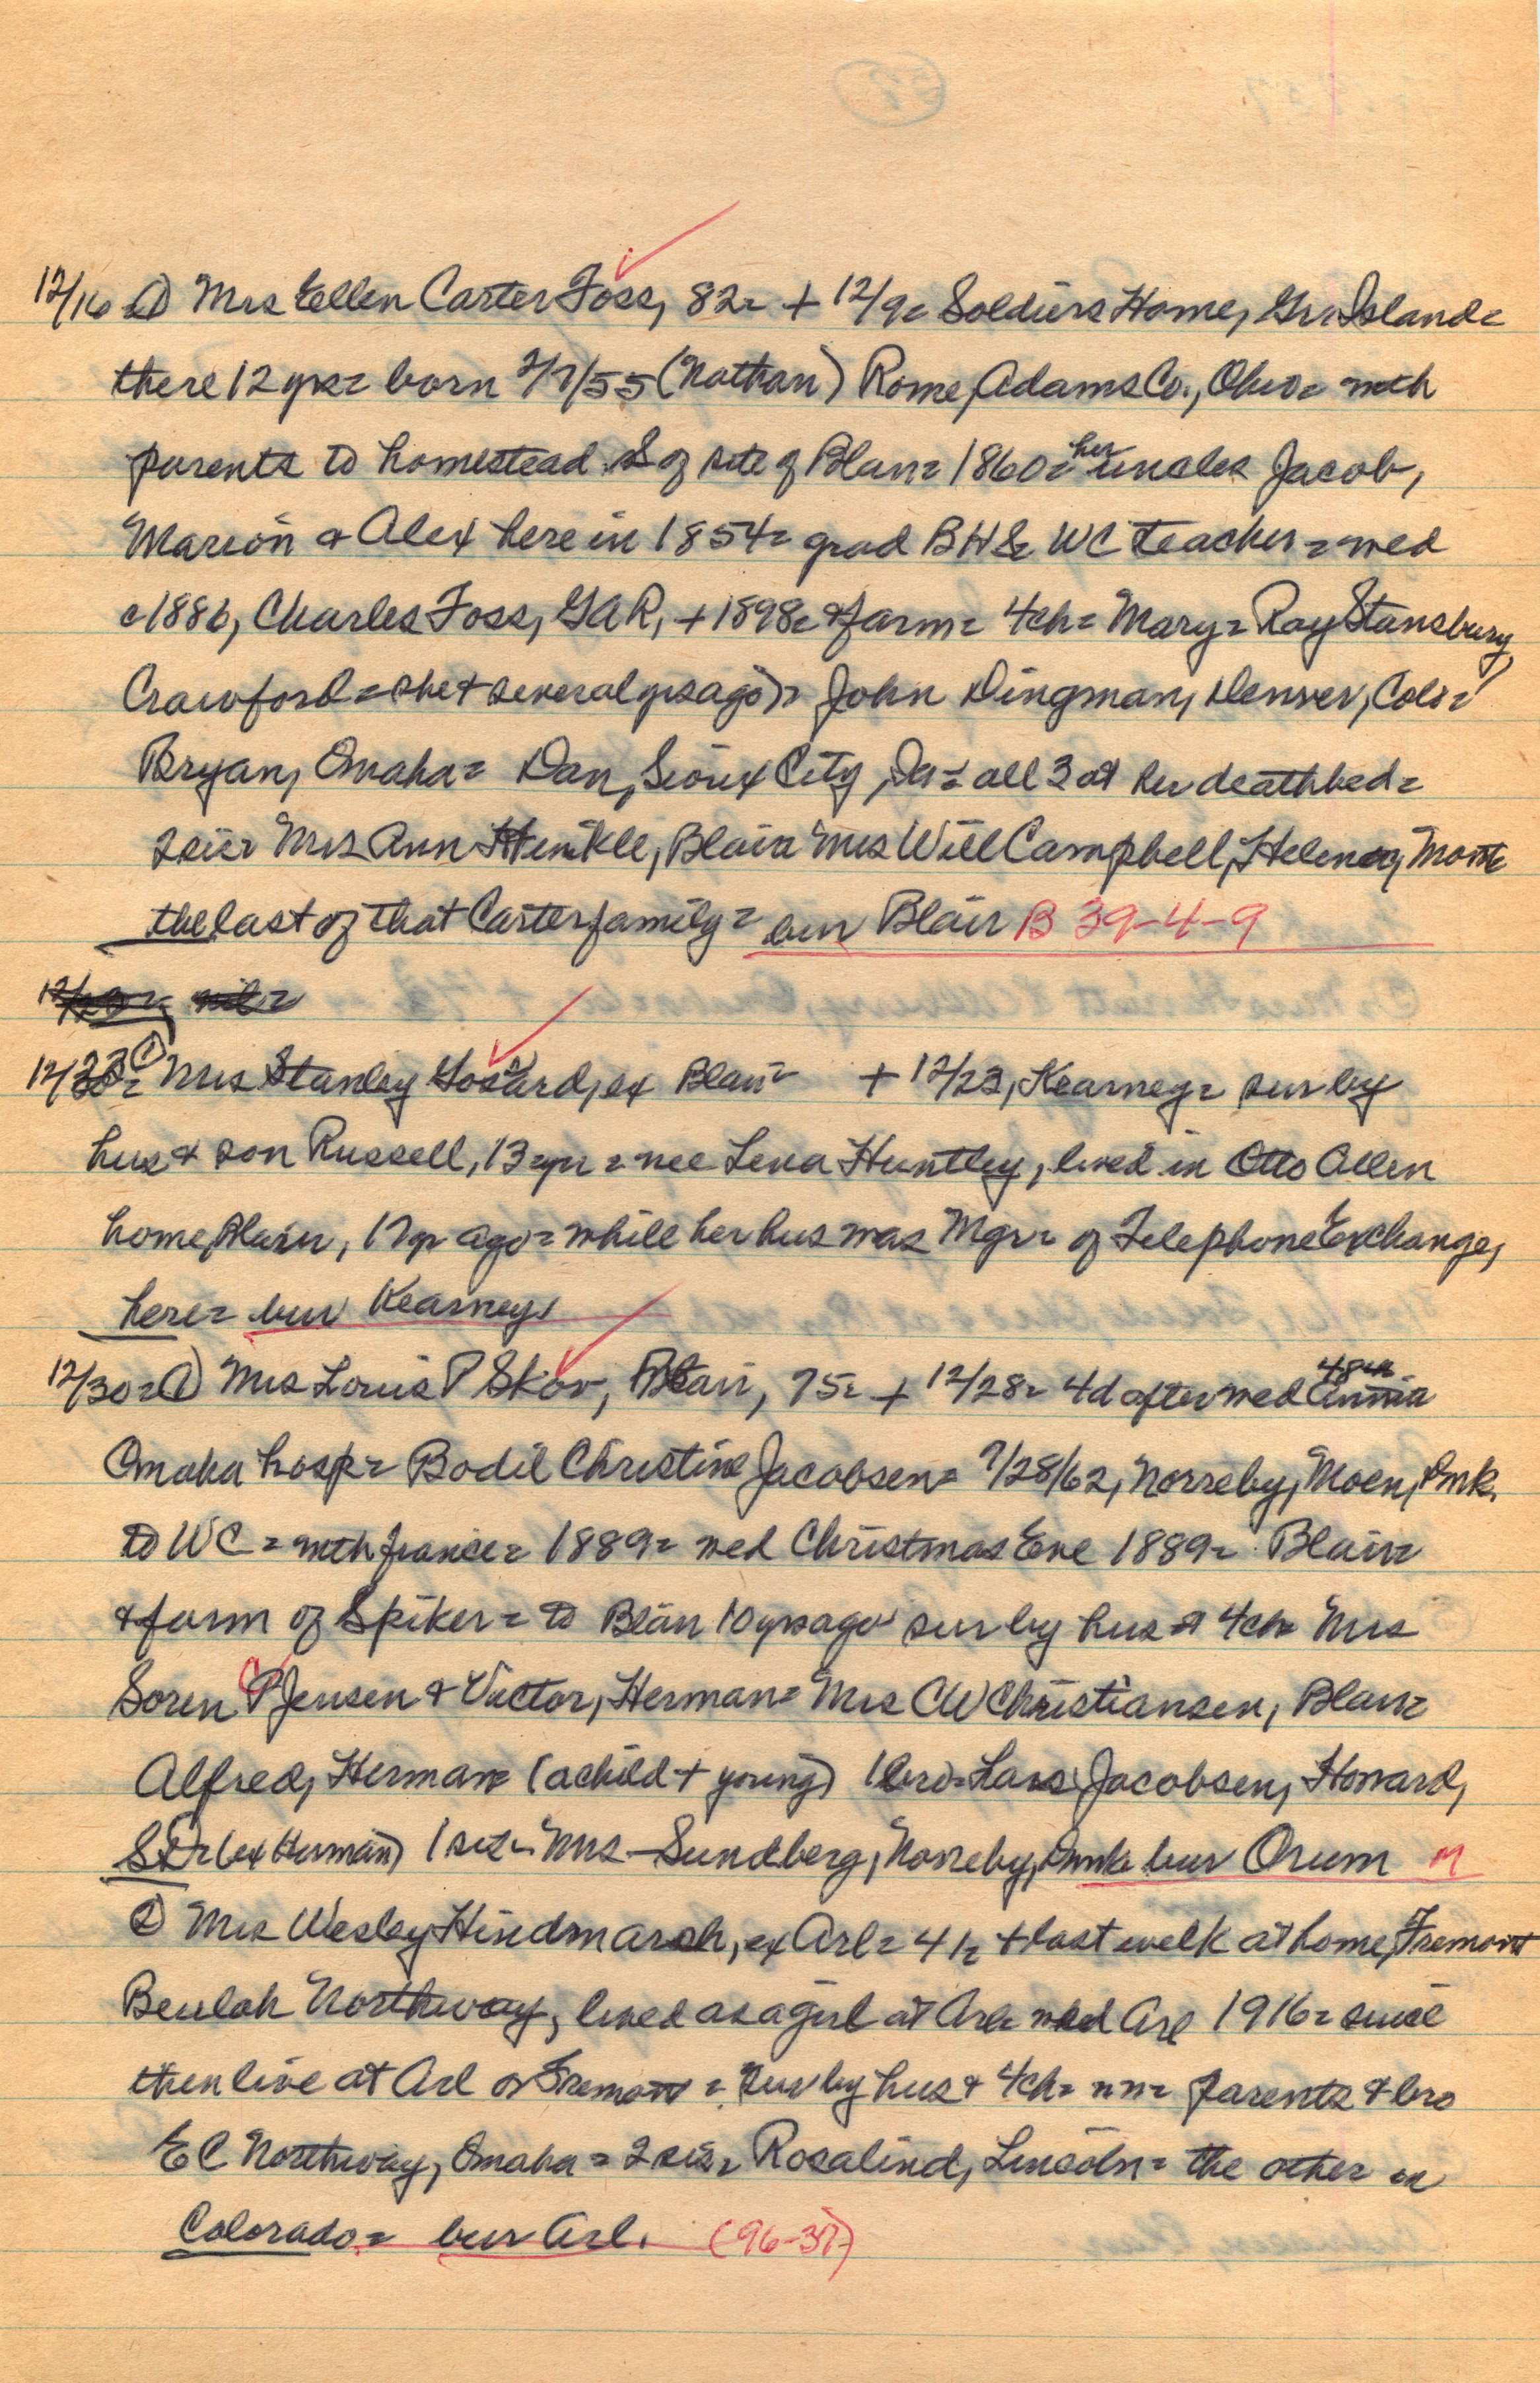 12/16 ① Mrs Ellen Carter Foss, 82= + 12/9= Soldiers Home, Gr. Island=
there 12 yrs= born 2/7/55 (Nathan) Rome, Adams Co., Ohio= with
parents to homestead S of site of Blair= 1860= her uncles Jacob,
Marion & Alex here in 1854= grad BHS= WC teacher= wed
c1886, Charles Foss, GAR, +1898= & farm= 4ch= Mary= Ray Stansbury,
Crawford= she + several yrs ago)= John Dingman, Denver, Colo=
Bryan, Omaha= Dan, Sioux City, Ia= all 3 at her deathbed=
2 sis= Mrs Ann Hinkle, Blair= Mrs Will Campbell, Helena, Mont=
the last of that Carter family= bur Blair B 39-4-9
12/23= ① Mrs Stanley Gossard, ex Blair= + 12/23, Kearney= sur by
hus & son Russell, 13 yr= nee Lena Huntley, lived in Otto Allen
home, Blair, 17 yr ago= while her hus was Mgr= of Telephone Exchange,
here= bur Kearney
12/30= ① Mrs Louis P Skov, Blair, 75= + 12/28= 4d after wed 48th Anniv
Omaha hosp= Bodil Christine Jacobsen= 7/28/62, Norreby, Moen, Dmk.
to WC= with fiance= 1889= wed Christmas Eve 1889= Blair=
& farm of Spiker= to Blair 10 yrs ago sur by hus & 4ch= Mrs
Soren P Jensen & Victor, Herman= Mrs CW Christiansen, Blair=
Alfred, Herman= (a child + young) 1 bro= Lars Jacobsen, Howard,
SD= (ex Herman) 1 sis= Mrs - Sundberg, Norreby, Dmk= bur Orum M
② Mrs Wesley Hindmarsh, ex Arl= 41= + last week at home, Fremont
Beulah Northway, lived as a girl at Arl= wed Arl 1916= since
then live at Arl or Fremont= sur by hus & 4ch= nn= parents & bro
EC Northway, Omaha= 2 sis= Rosalind, Lincoln= the other in
Colorado= bur Arl. (96-37)